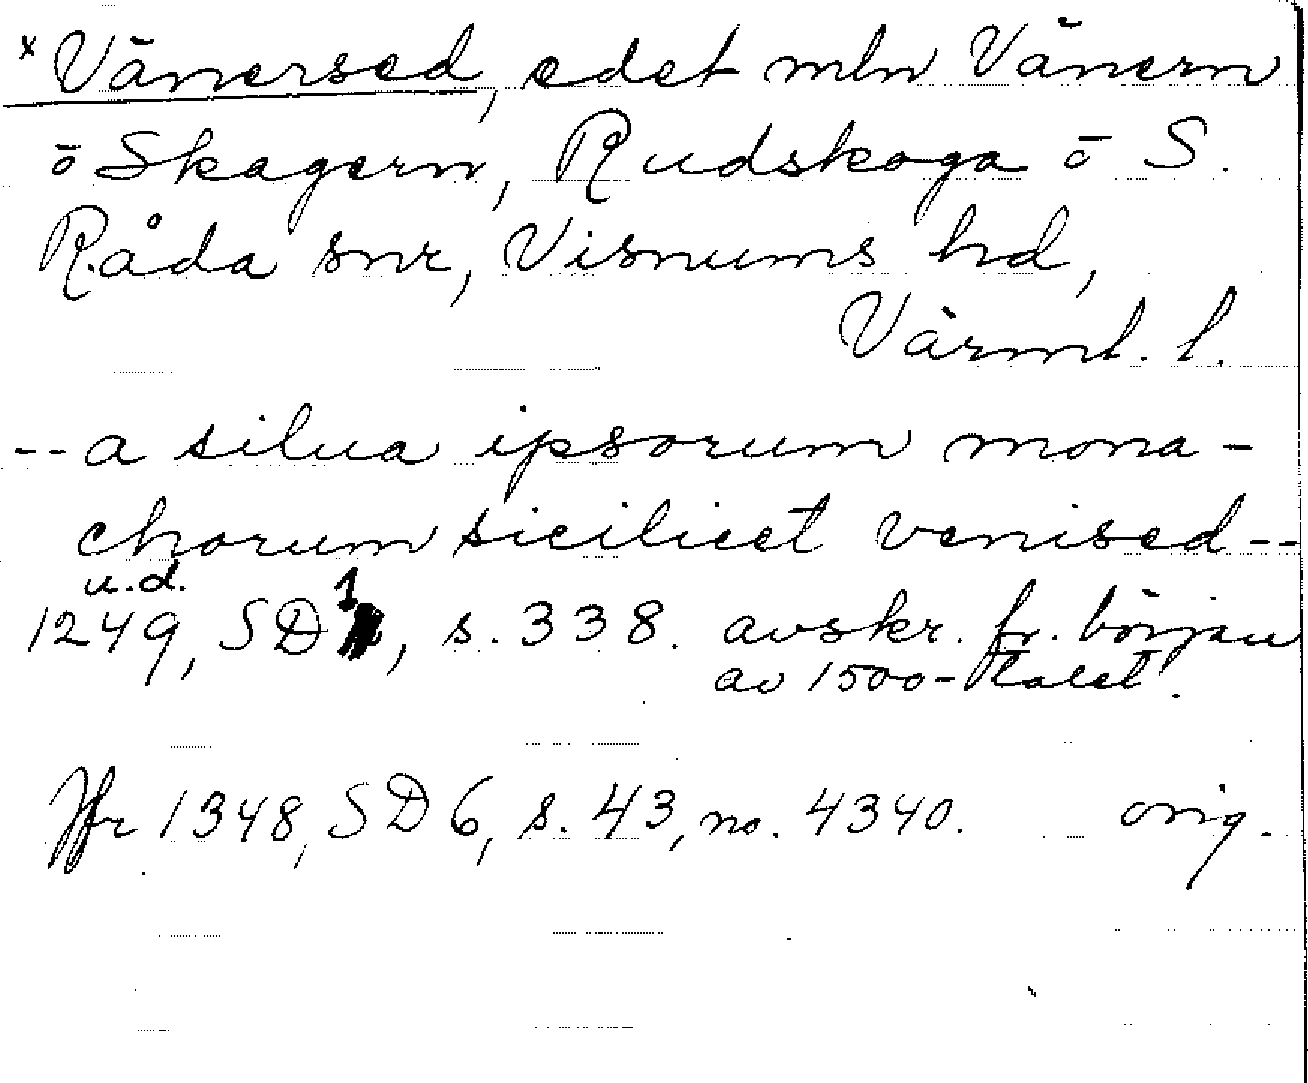 x Vänersed, edet mln Vänern
ō Skagern, Rudskoga ō S.
Råda snr, Visnums hd,
Värml. l.
-- a silua ipsorum mona-
chorum siciliect venised --
u.d.
1249, SD 1, s. 338. avskr. fr. början
av 1500-talet.
Jfr 1348, SD 6, s. 43, no. 4340. orig.